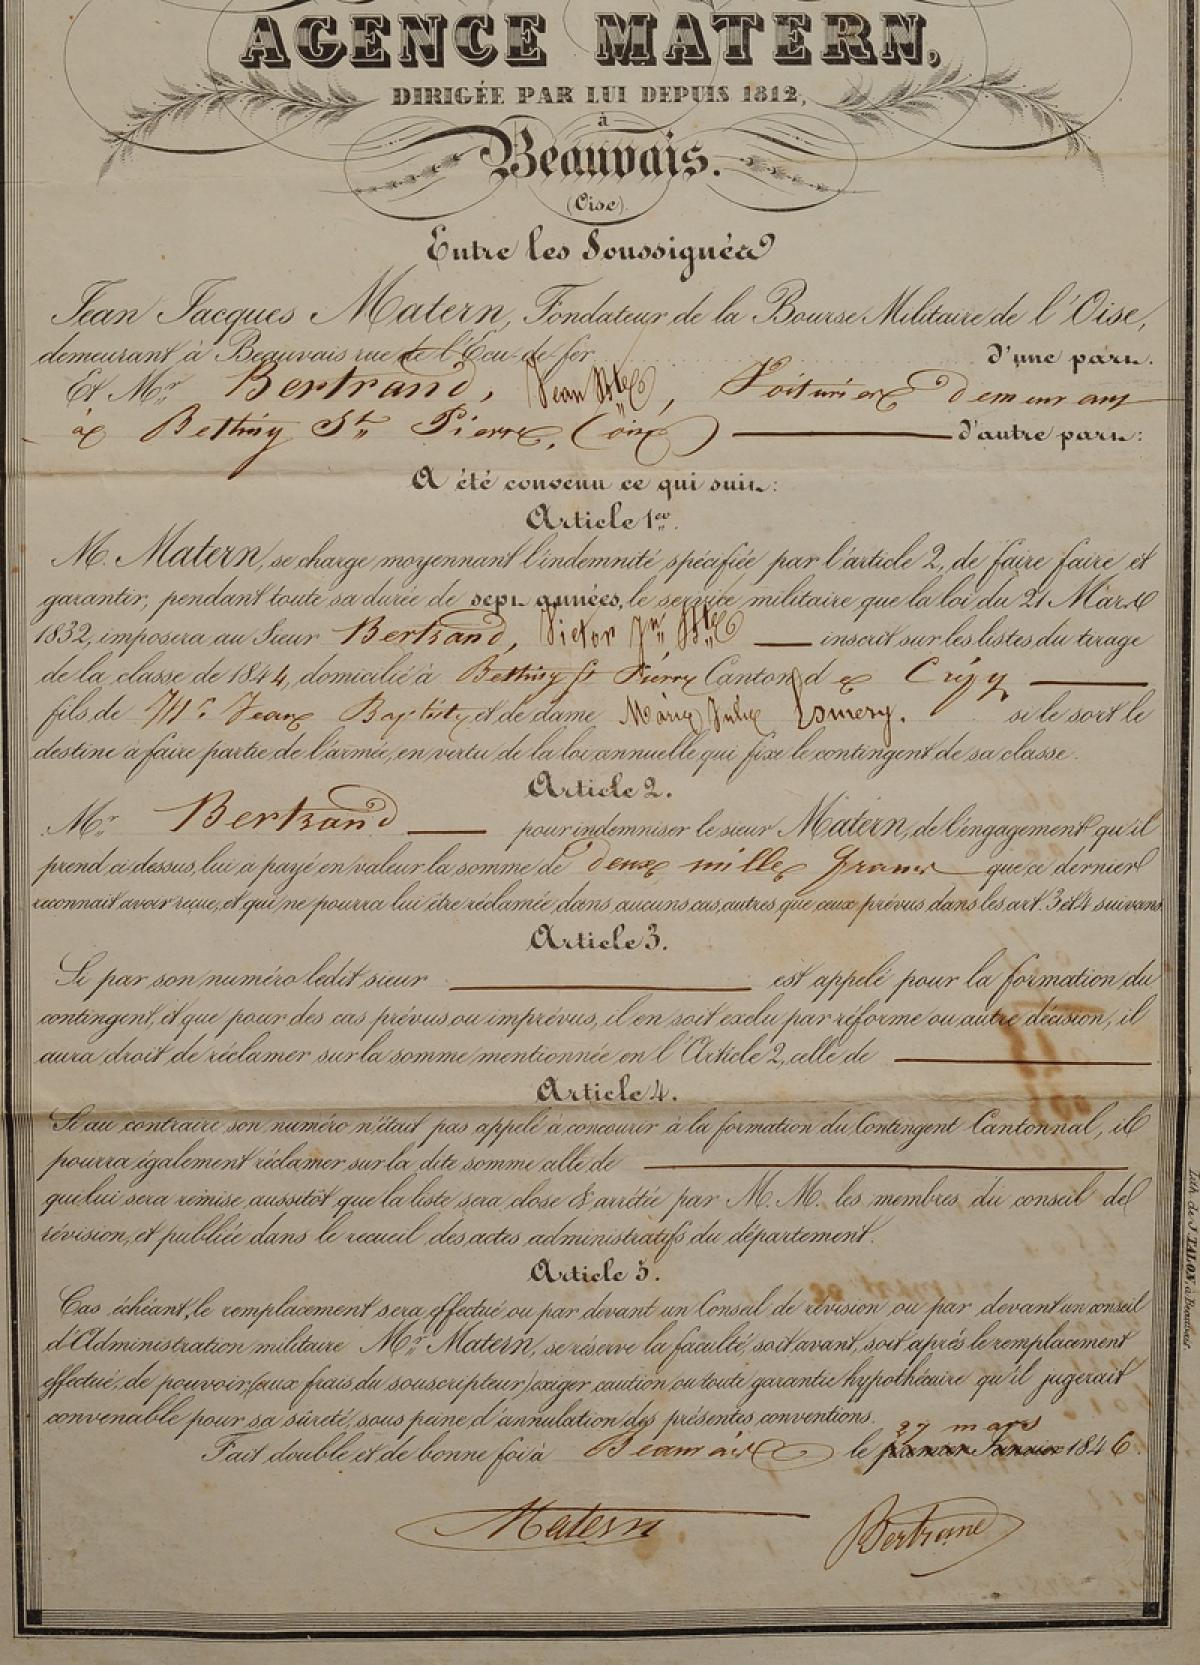 AGENCE MATERN,
DIRIGÉE PAR LUI DEPUIS 1812,
à
Beauvais.
(Oise).
Entre les Soussignés
Jean Jacques Matern, Fondateur de la Bourse Militaire de l'Oise,
demeurant à Beauvais rue de l'Ecu-de-fer d'une part.
Et Mr Bertrand, Jean Bte, Voiturier demeurant
à Bethizy St Pierre, (oise) d'autre part:
A été convenu ce qui suit:
Article 1er.
M. Matern, se charge moyennant l'indemnité spécifiée par l'article 2, de faire faire et
garantir, pendant toute sa durée de sept années, le service militaire que la loi du 21 Mars
1832, imposera au Sieur Bertrand, Victor Jn Bte inscrit sur les listes du tirage
de la classe de 1844, domicilié à Bethizy St Pierre Canton de Crépy
fils de Mr Jean Baptiste et de dame Marie Julie Esmery. si le sort le
destine à faire partie de l'armée, en vertu de la loi annuelle qui fixe le contingent de sa classe.
Article 2.
Mr Bertrand pour indemniser le sieur Matern, de l'engagement qu'il
prend ci dessus, lui a payé en valeur la somme de deux mille francs que ce dernier
reconnait avoir reçue, et qui ne pourra lui être réclamée dans aucuns cas, autres que ceux prévus dans les art. 3 et 4 suivans.
Article 3.
Si par son numéro ledit sieur est appelé pour la formation du
contingent, et que pour des cas prévus ou imprévus, il en soit exclu par réforme ou autre décision, il
aura droit de réclamer sur la somme mentionnée en l'Article 2, celle de
Article 4.
Si au contraire son numéro n'était pas appelé à concourir à la formation du Contingent Cantonnal, il
pourra également réclamer sur la dite somme celle de
qui lui sera remise aussitôt que la liste sera close & arrêtée par M. M. les membres du conseil de
révision, et publiée dans le recueil des actes administratifs du département.
Article 5.
Cas échéant, le remplacement sera effectué ou par devant un Conseil de révision ou par devant un conseil
d'Administration militaire Mr Matern, se réserve la faculté, soit avant, soit après le remplacement
effectué, de pouvoir, (aux frais du souscripteur) exiger caution ou toute garantie hypothécaire qu'il jugerait
convenable pour sa sûreté, sous peine d'annulation des présentes conventions.
27 mars
Fait double et de bonne foi à Beauvais le premier Janvier 1846.
Matern Bertrand
Lith. de St. TALON à Beauvais